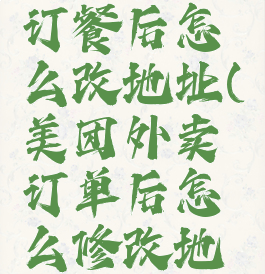 订餐后怎
么改地址(
美团外卖
订单后怎
么修改地